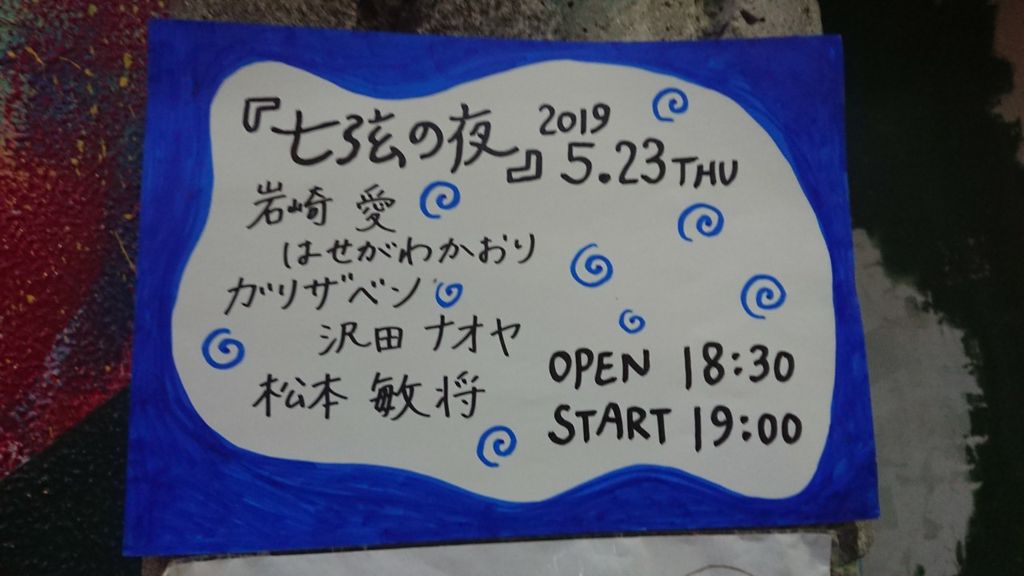 『七弦の夜』 2019
5.23 THU
岩崎 愛
はせがわかおり
ガリザベン
沢田 ナオヤ
松本 敏将
OPEN 18:30
START 19:00